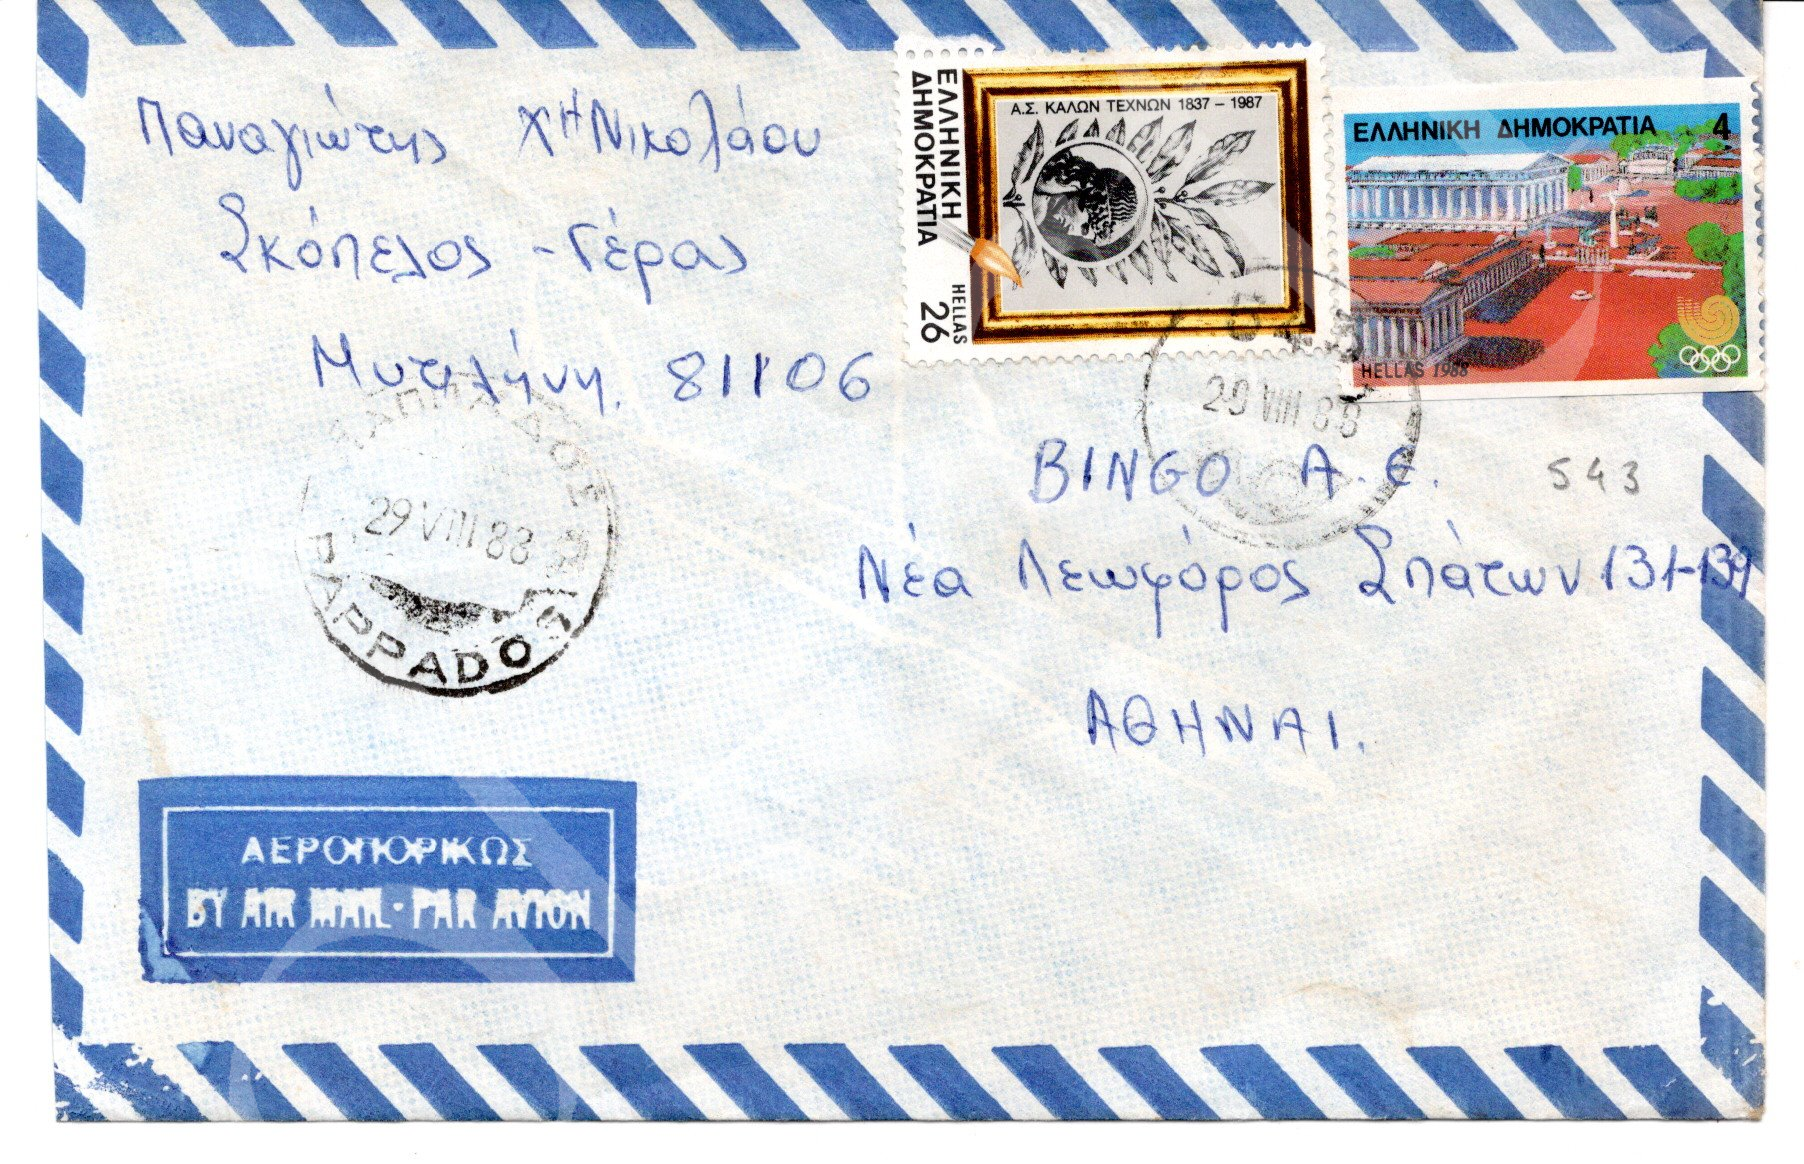 Παναγιώτης ΧΗΝικολάου
Σκόπελος - Γέρας
Μυτιλήνη. 81106
ΕΛΛΗΝΙΚΗ
ΔΗΜΟΚΡΑΤΙΑ
HELLAS
26
Α.Σ. ΚΑΛΩΝ ΤΕΧΝΩΝ 1837 – 1987
ΕΛΛΗΝΙΚΗ ΔΗΜΟΚΡΑΤΙΑ 4
HELLAS 1988
29 VIII 88
BINGO Α.Ε. 543
Νέα Λεωφόρος Σπάτων 131-139
ΑΘΗΝΑΙ.
ΠΑΠΠΑΔΟΣ
29 VIII 88
PAPPADOS
ΑΕΡΟΠΟΡΙΚΩΣ
BY AIR MAIL - PAR AVION